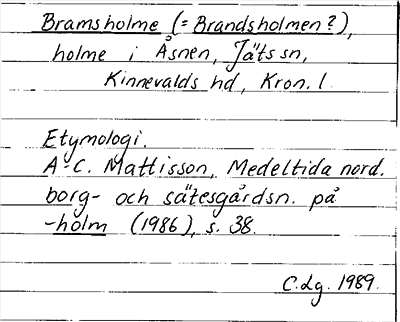 Bramsholme (= Brandsholmen?),
holme i Åsnen, Jäts sn,
Kinnevalds hd, Kron. l.
Etymologi.
A-C. Mattisson, Medeltida nord.
borg- och sätesgårdsn. på
-holm (1986), s. 38.
C.Lg. 1989.